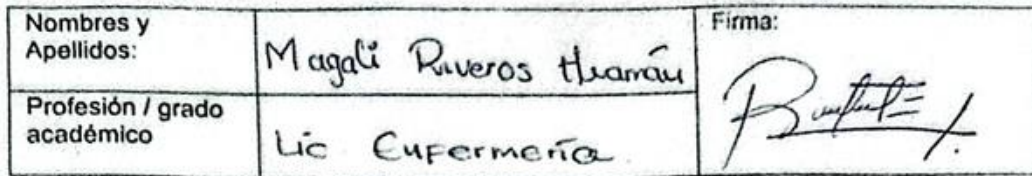 Nombres y
Apellidos:
Magali Riveros Huamán
Firma:
Profesión / grado
académico
Lic Enfermería